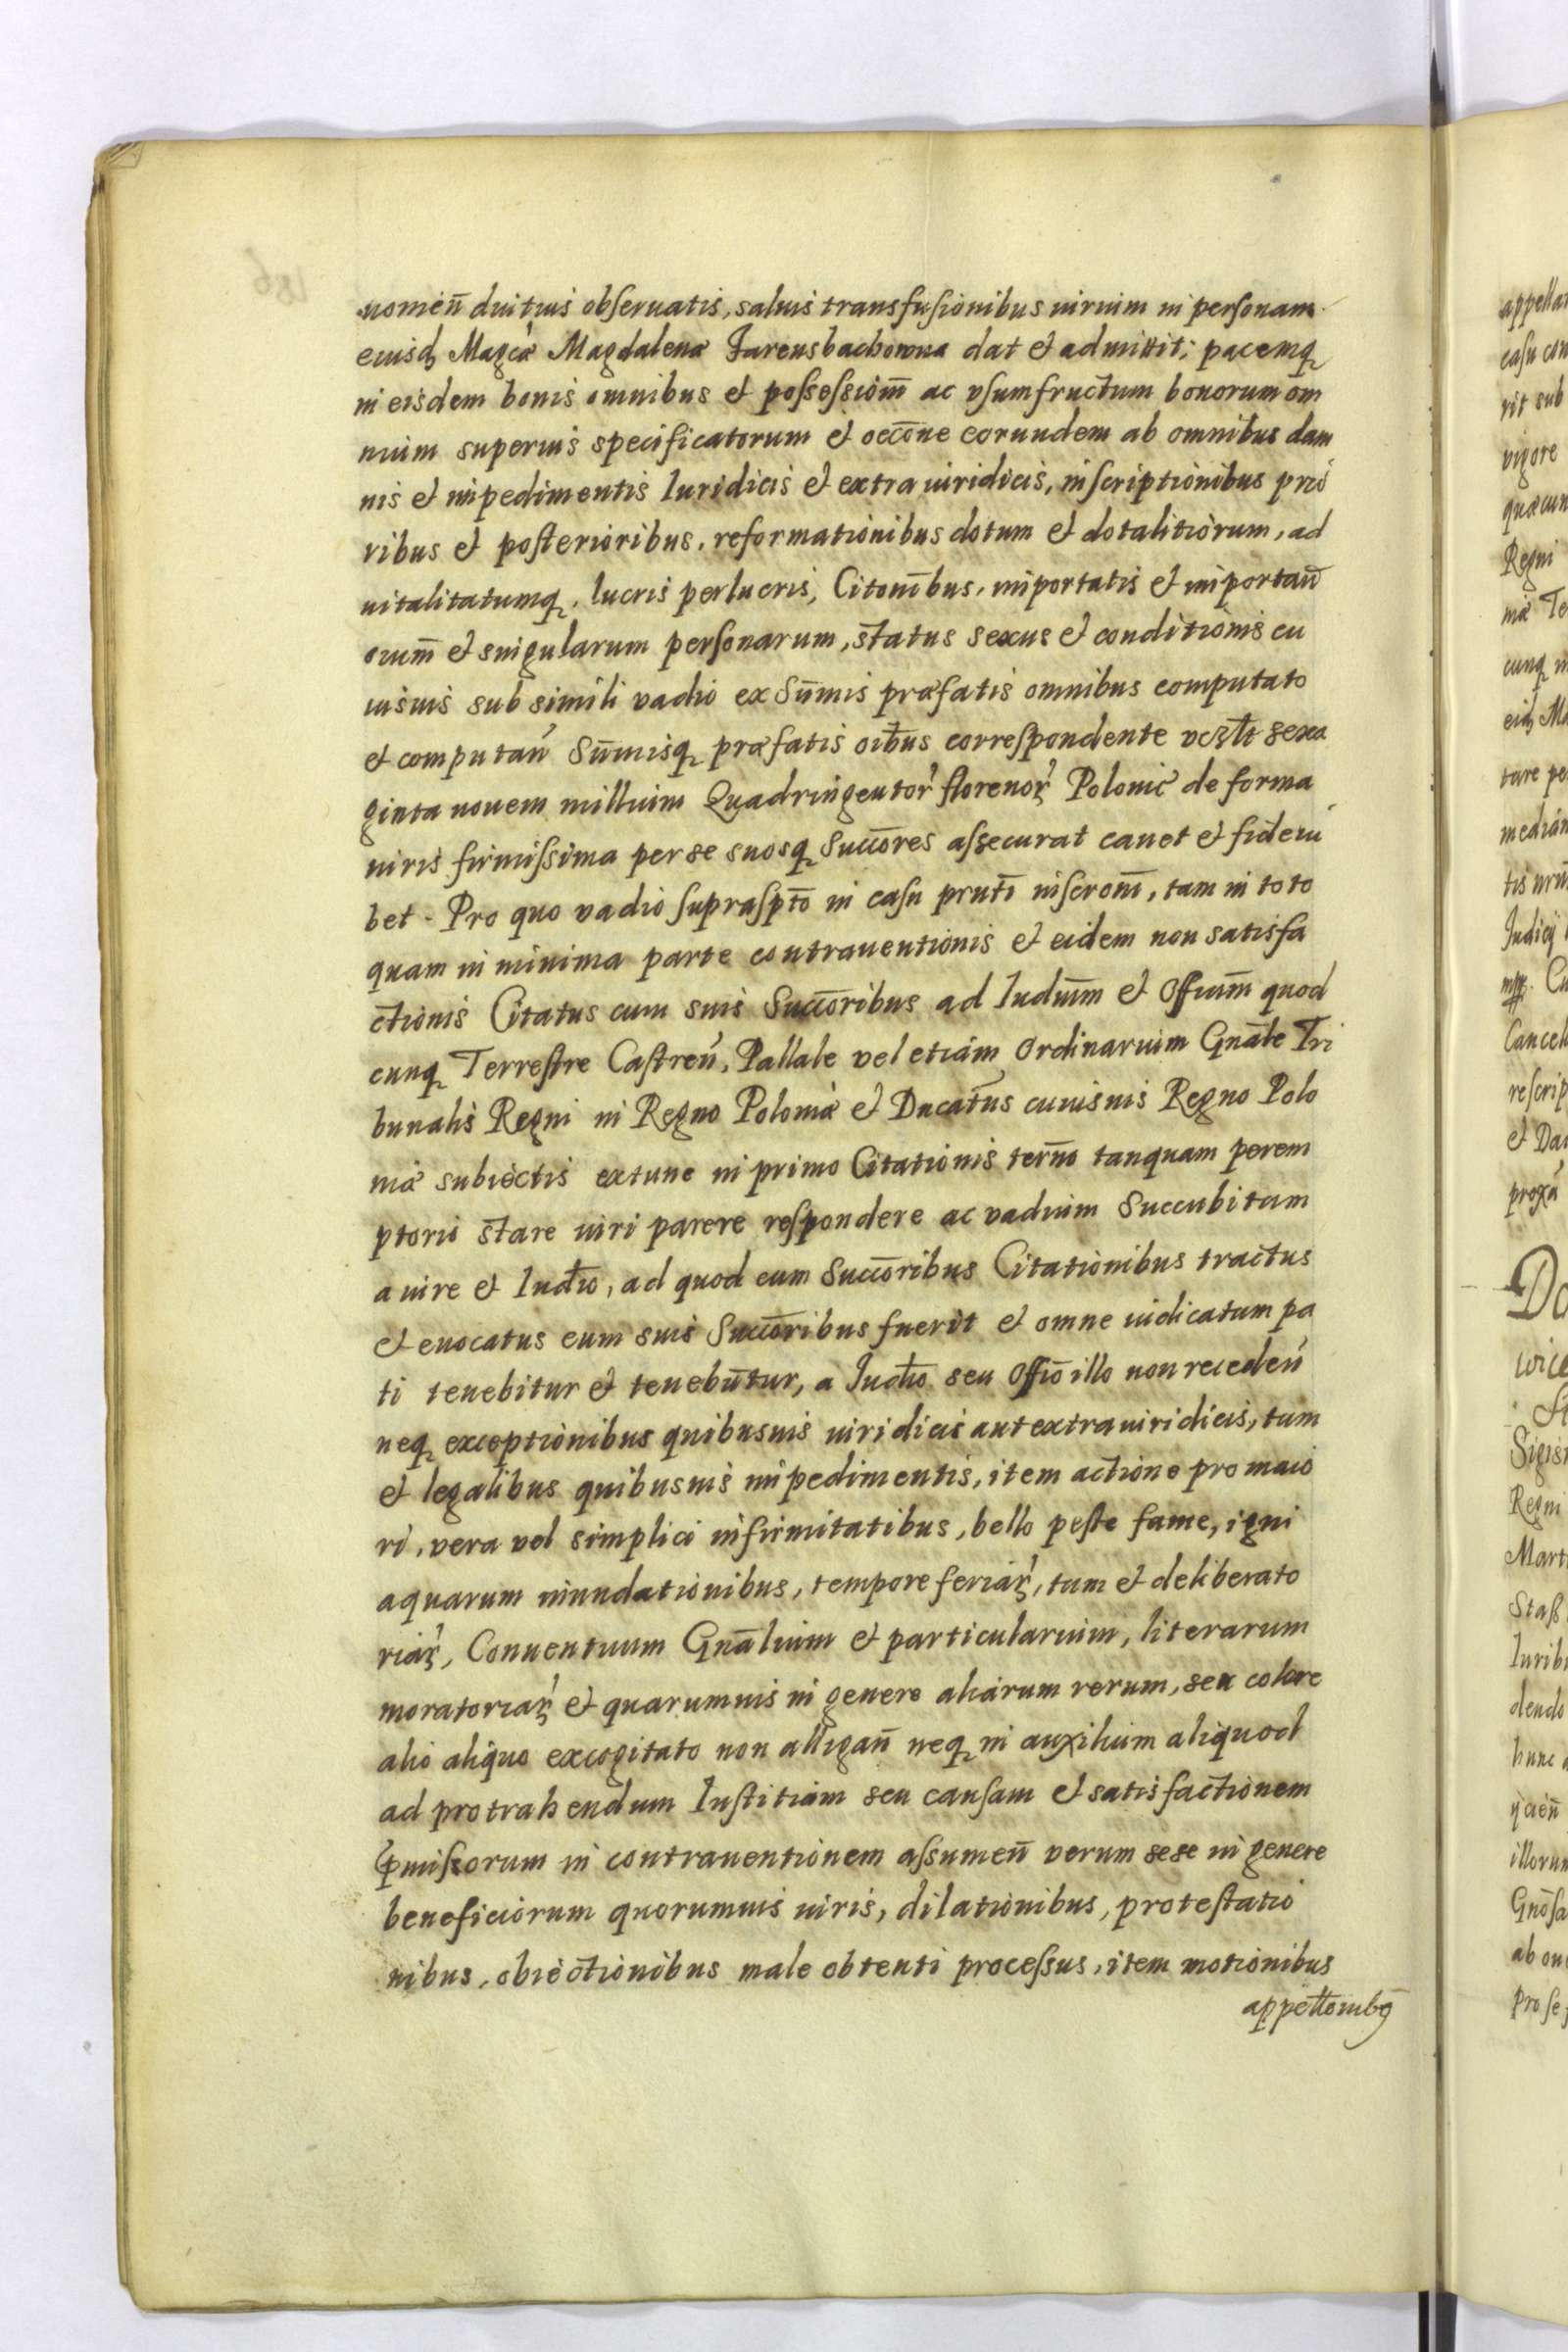 nomen̄ diuitus obseruatis, saluis transfusionibus iurium in personam
eiusdꝫ Magcæ Magdalenæ Farensbachowna dat et admittit; pacemqꝫ
in eisdem bonis omnibus et possessiom̄ ac vsumfructum bonorum om
nium superius specificatorum et occōne eorundem ab omnibus dam
nis et impedimentis Iuridicis et extra iuridicis, inscriptionibus prio
ribus et posterioribus, reformationibus dotum et dotalitiorum, ad
uitalitatumqꝫ, lucris perlucris, Citonībus, importatis et importan̄
oium̄ et singularum personarum, status sexus et conditionis cu
iusuis sub simili vadio ex Sūmis præfatis omnibus computato
et computan̄ Sūmisqꝫ præfatis oībus correspondente vczłt sexa
ginta nouem millium Quadringentor̃ florenorꝫ Polonic̃ de forma
iuris firmissima per se suosqꝫ Succōres assecurat cauet et fideiu
bet. Pro quo vadio supraspt̄o in casu prntī inscronī, tam in toto
quam in minima parte contrauentionis et eidem non satisfa
ctionis Citatus cum suis Succōribus ad Iudiūm et Offium̄ quod
cunqꝫ Terrestre Castren̄, Pallale vel etiam Ordinarium Gnāle Tri
bunalis Regni in Regno Poloniæ et Ducatūs cuiusuis Regno Polo
niæ subiectis extunc in primo Citationis tern̄o tanquam perem
ptorio stare iuri parere respondere ac vadium Succubitum
a iure et Iudīo, ad quod cum Succōribus Citationibus tractus
et euocatus cum suis Succōribus fuerit et omne iudicatum pa
ti tenebitur et tenebūtur, a Iudīo seu Offīo illo non receden̄
neqꝫ exceptionibus quibusuis iuridicis aut extra iuridicis, tum
et legalibus quibusuis impedimentis, item actione pro maio
ri, vera vel simplici infirmitatibus, bello peste fame, igni
aquarum inundationibus, tempore feriarꝫ, tum et deliberato
riarꝫ, Conuentuum Gnālium et particularium, literarum
moratoriarꝫ et quarumuis in genere aliarum rerum, seu colore
alio aliquo excogitato non alligan̄ neqꝫ in auxilium aliquod
ad protrahendum Iustitiam seu causam et satisfactionem
p̄missorum in contrauentionem assumen̄ verum sese in genere
beneficiorum quorumuis iuris, dilationibus, protestatio
nibus, obiectionibus male obtenti processus, item motionibus
appellōnibꝫ